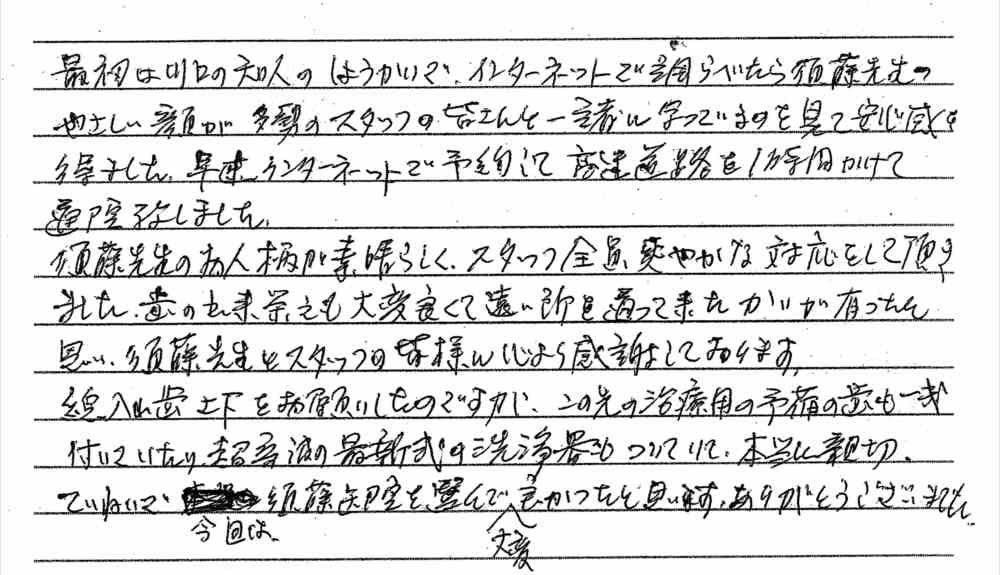 最初は川口の知人のしょうかいで、インターネットで調らべたら須藤先生の
やさしい顔が多勢のスタッフの皆さんと一諸に写っているのを見て安心感を
得ました。早速インターネットで予約して高速道路を1時間かけて
通院致しました。
須藤先生のお人柄が素晴らしく、スタッフ全員爽やかな対応をして頂き
ました。歯の出来栄えも大変良くて遠い所を通って来たかいが有ったと
思い、須藤先生とスタッフの皆様に心より感謝しております。
総入れ歯上下をお願いしたのですが、この先の治療用の予備の歯も一式
付いていたり、超音波の最新式の洗浄器もついていて、本当に親切、
ていねいで 須藤医院を選んで良かったと思います。ありがとうございました。
今回は、 大変